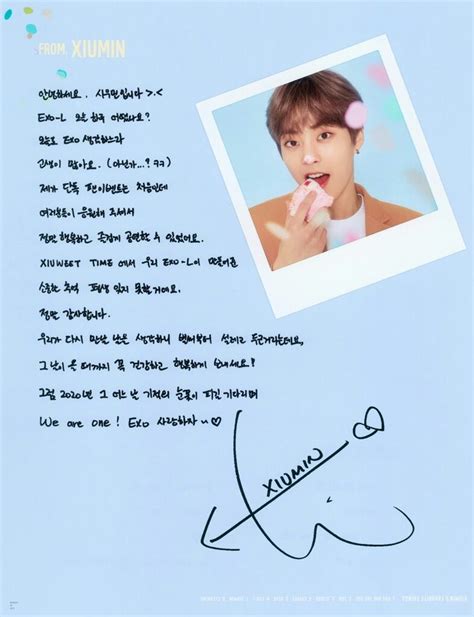 FROM. XIUMIN
안녕하세요. 시우민입니다 >.<
EXO-L 오늘 하루 어땠나요?
오늘도 EXO 생각하느라
고생이 많아요. (아닌가...? ㅋㅋ)
제가 단독 팬이벤트는 처음인데
여러분들이 응원해 주셔서
정말 행복하고 즐겁게 공연할 수 있었어요.
XIUWEET TIME에서 우리 EXO-L이 만들어준
소중한 추억 평생 잊지 못할거에요.
정말 감사합니다.
우리가 다시 만날 날을 생각하니 벌써부터 설레고 두근거리는데요,
그날이 올 때까지 꼭 건강하고 행복하게 보내세요!
그럼 2020년 그 어느 날 기적의 눈꽃이 피길 기다리며
We are one! EXO 사랑하자~♡
XIUMIN ♡